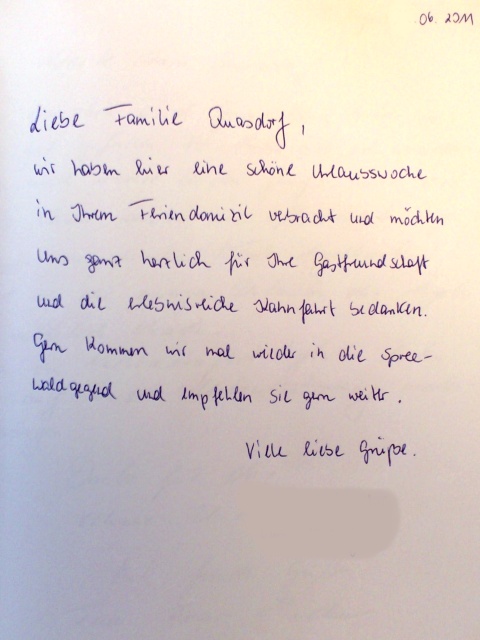 06. 2011
Liebe Familie Quasdorf,
wir haben hier eine schöne Urlaubswoche
in Ihrem Feriendomizil verbracht und möchten
uns ganz herzlich für Ihre Gastfreundschaft
und die erlebnisreiche Kahnfahrt bedanken.
Gern kommen wir mal wieder in die Spree-
waldgegend und empfehlen Sie gern weiter.
Viele liebe Grüße.